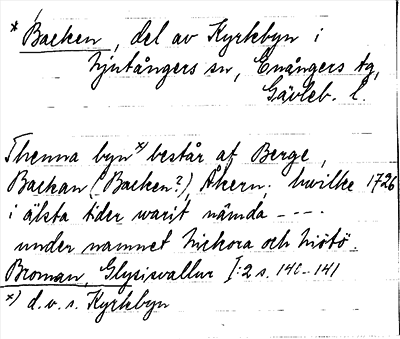 * Backen, del av Kyrkbyn i
Njutångers sn, Enångers tg,
Gävleb. l.
Thenna byn *) består af Berge,
Backan (Backen?) Åkern. hwilke 1726
i älsta tider warit nämda ----.
under namnet och
Broman, Glysisvallur I:2 s. 140-141
*) d.v.s. Kyrkbyn